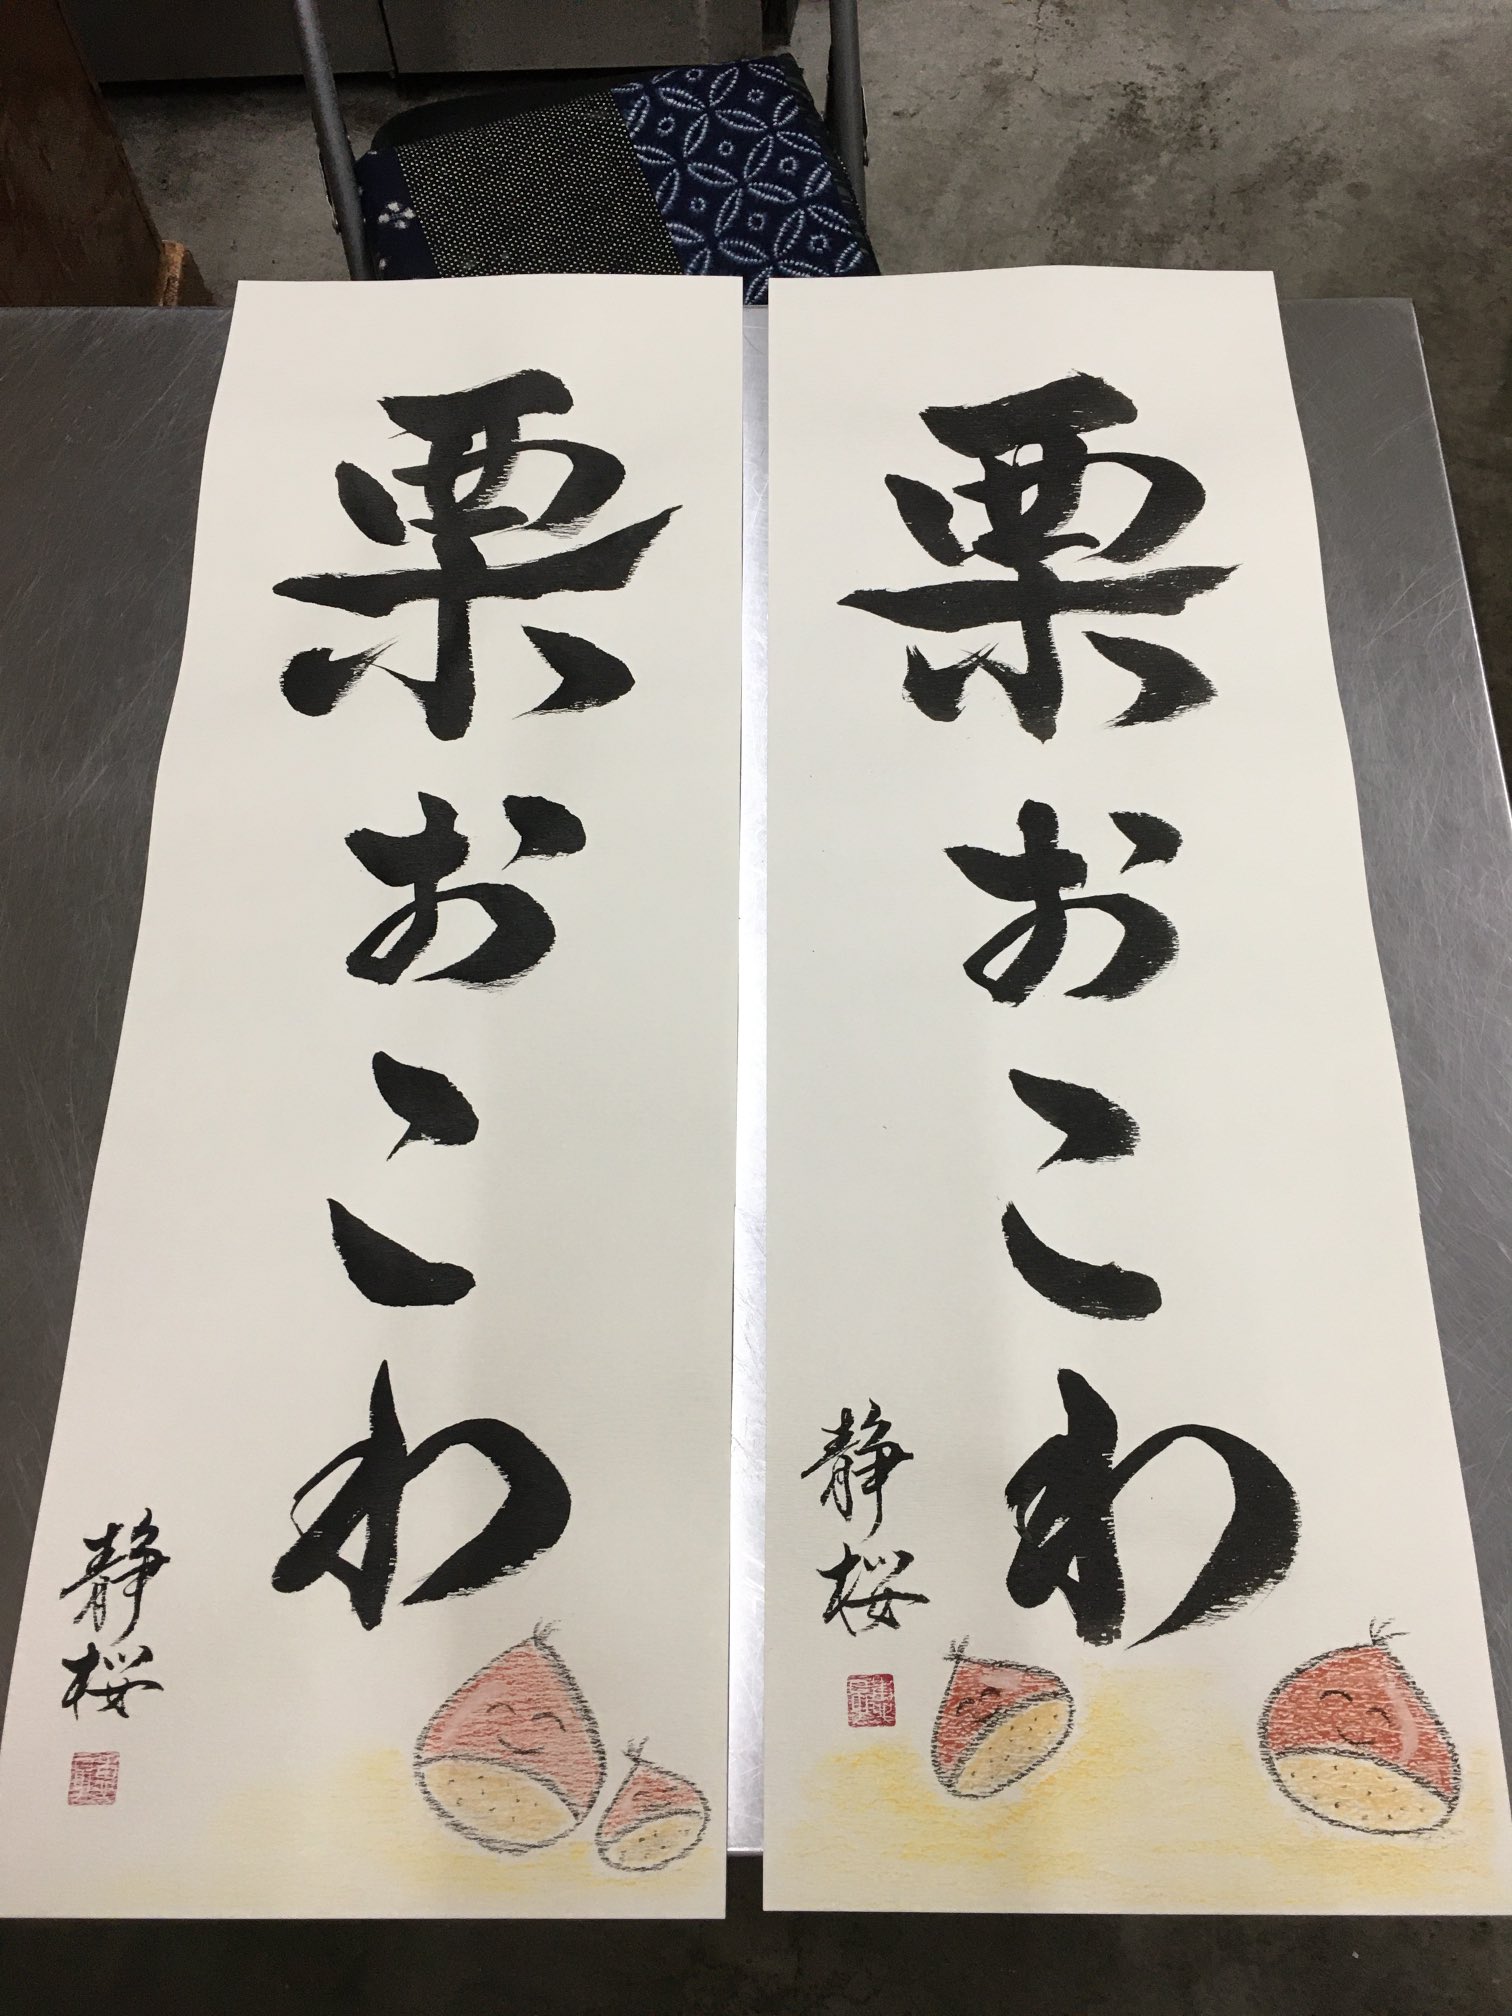 栗おこわ
静桜
栗おこわ
静桜